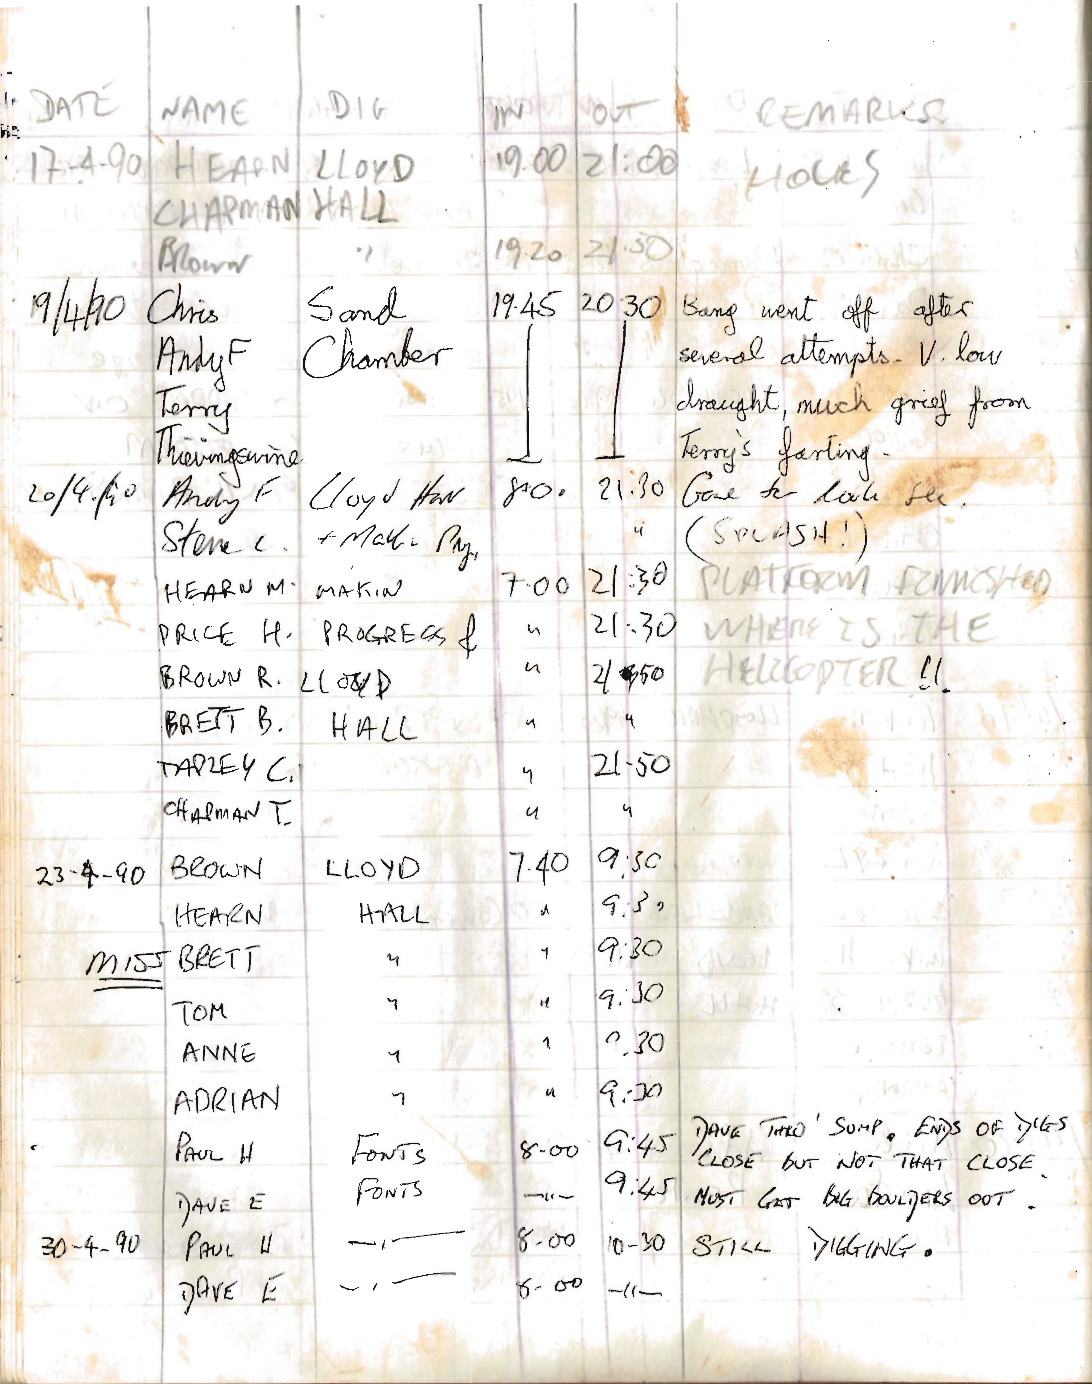 DATE NAME DIG IN OUT REMARKS
17-4-90 HEARN LLOYD 19.00 21:00 HOLES
CHAPMAN HALL
BROWN " 19.20 21.50
19/4/90 Chris Sand 19.45 20 30 Bang went off after
Andy F Chamber several attempts. V. low
Terry draught, much grief from
Thievingswine Terry's farting.
20/4/90 Andy F Lloyd Hall 8.0. 21.30 Gone to look see.
Steve C. + " (SPLASH!)
HEARN M. MAKIN 7.00 21:30 PLATFORM FINNISHED
PRICE H. PROGRESS & " 21:30 WHERE IS THE
BROWN R. LLOYD " 21 50 HELICOPTER !!
BRETT B. HALL " "
TARZEY C. " 21-50
CHAPMAN T. " "
23-4-90 BROWN LLOYD 7.40 9:30
HEARN HALL " 9:30
MISS BRETT " " 9:30
TOM " " 9:30
ANNE " " 9.30
ADRIAN " " 9:30
PAUL H FONTS 8-00 9:45 DAVE THRO' SUMP. ENDS OF DIGS
CLOSE BUT NOT THAT CLOSE.
DAVE E FONTS —"— 9:45 MUST GET BIG BOULDERS OUT.
30-4-90 PAUL H —"— 8-00 10-30 STILL DIGGING.
DAVE E —"— 8-00 —"—